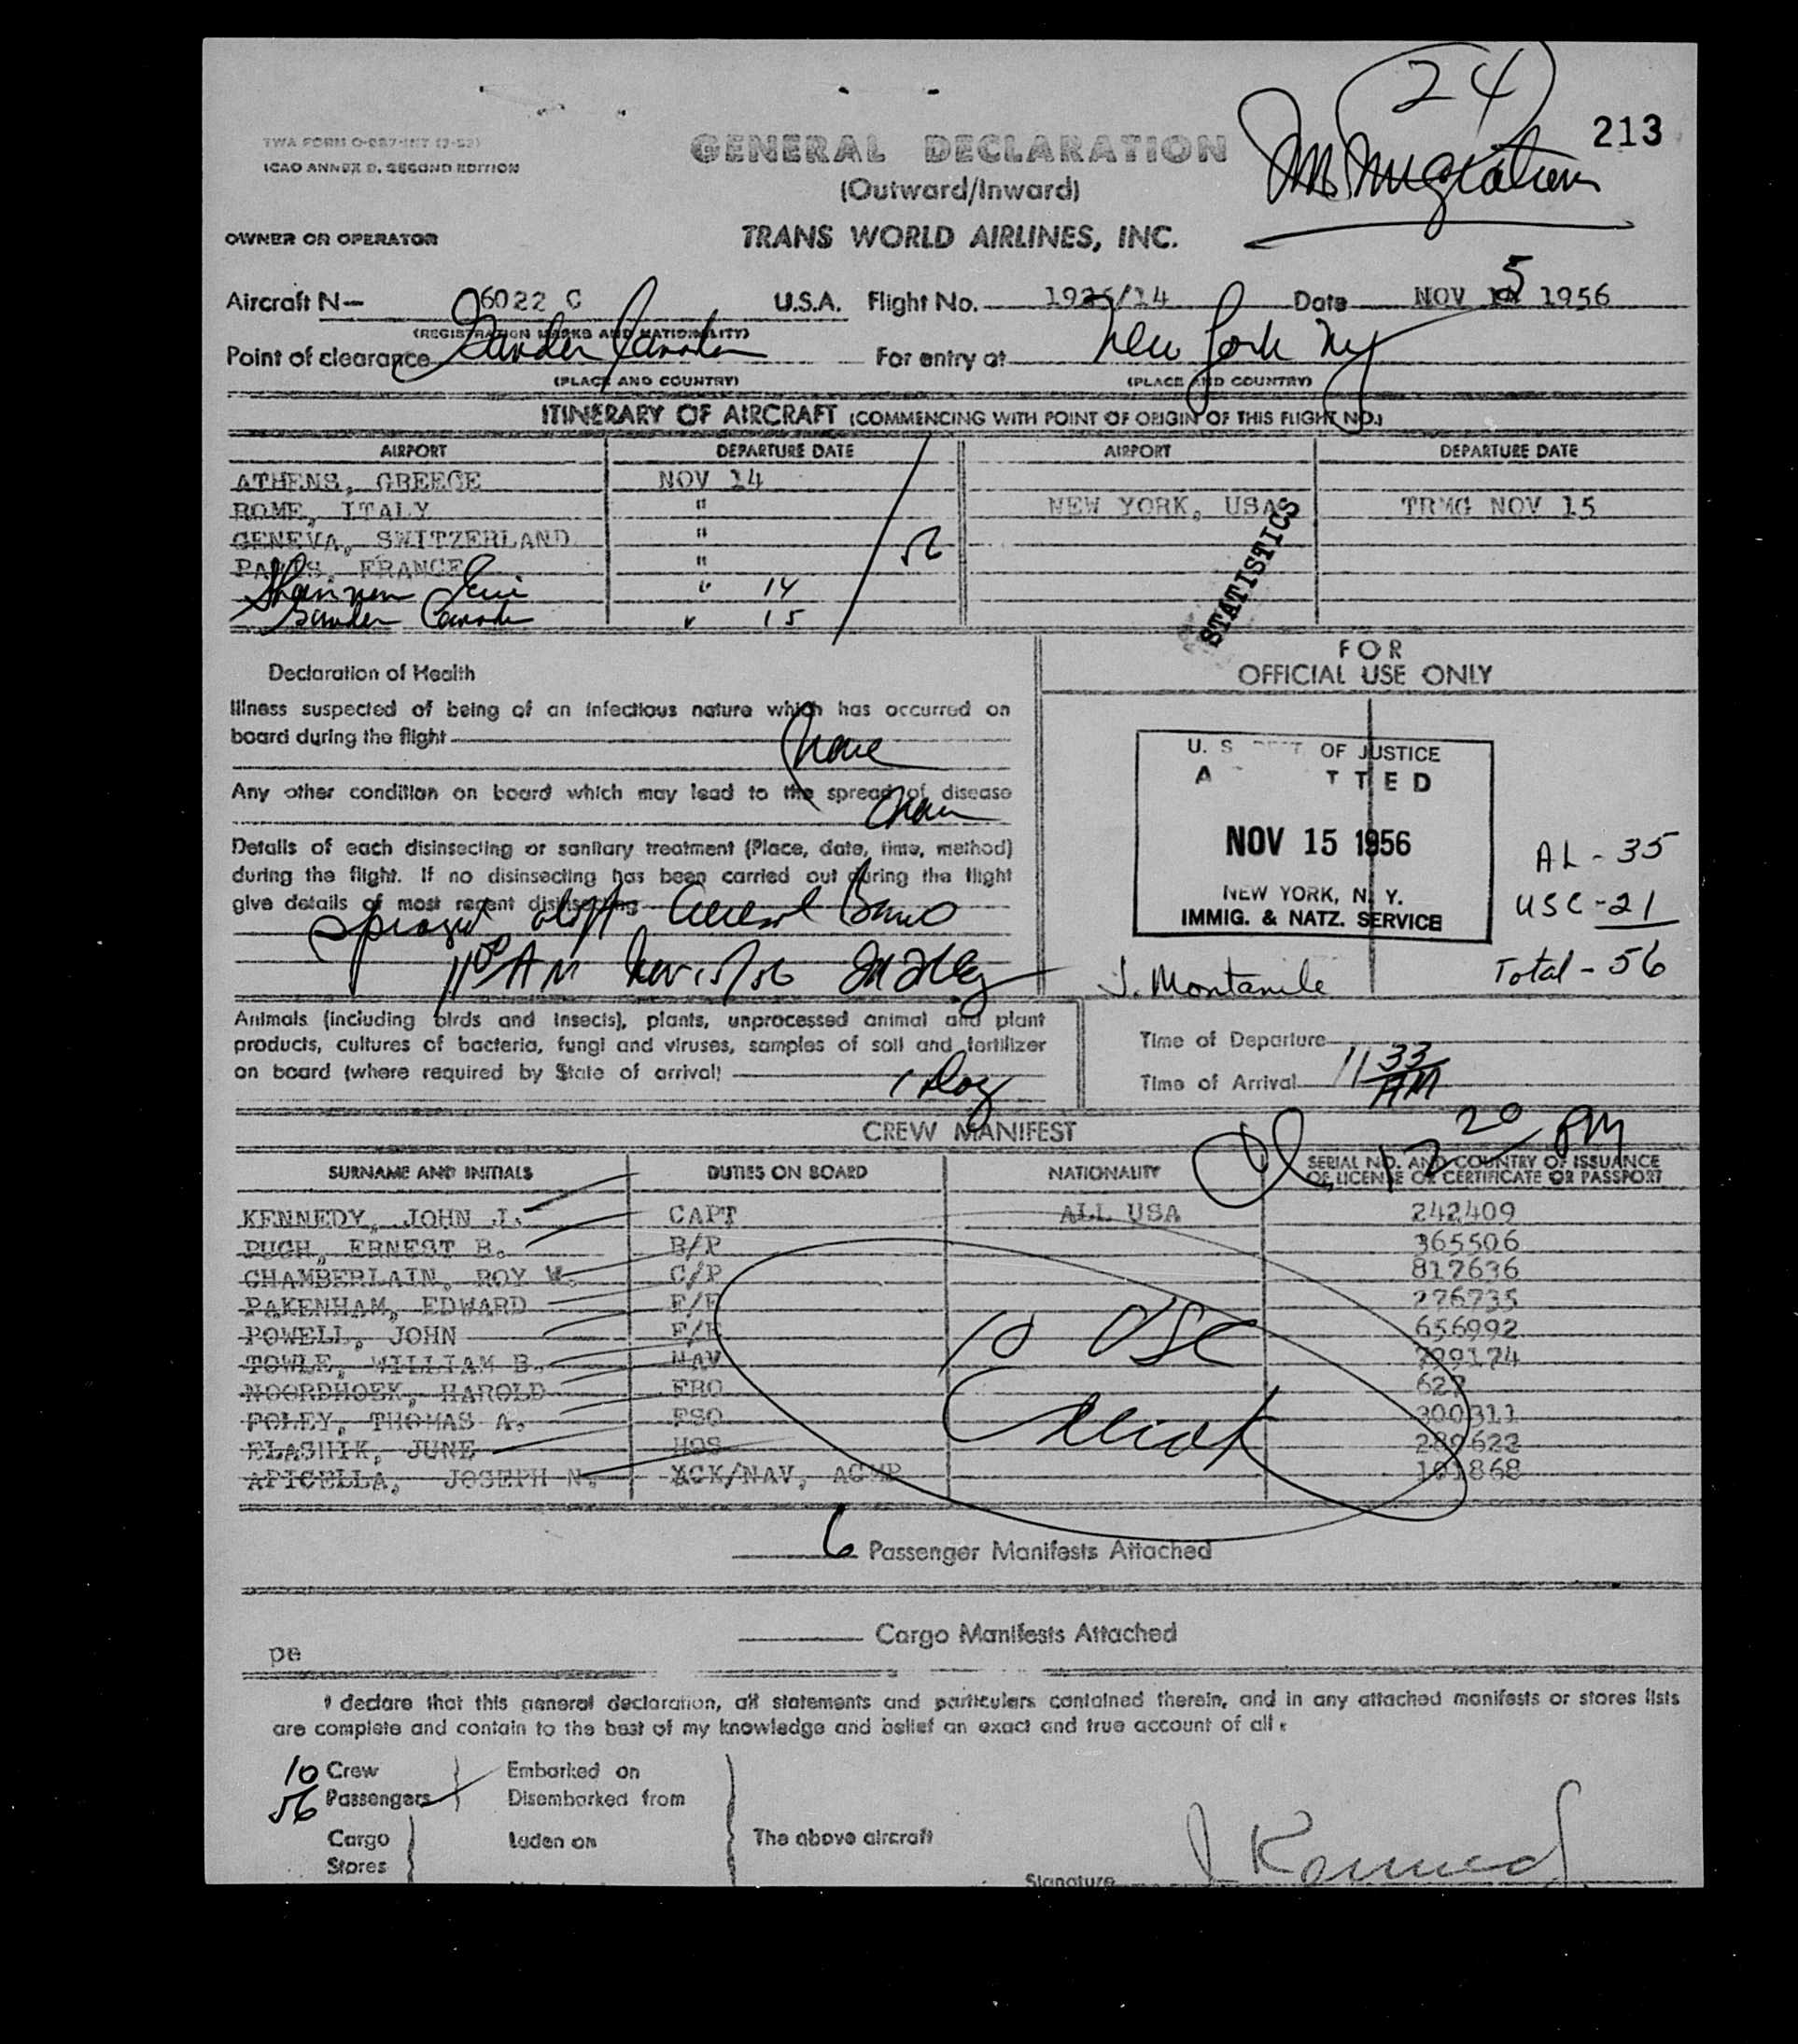 24
Immigration
213
TWA FORM O-257-INT (3-53)
ICAO ANNEX 9, SECOND EDITION
GENERAL DECLARATION
(Outward/Inward)
OWNER OR OPERATOR
TRANS WORLD AIRLINES, INC.
Aircraft N— 6022 C U.S.A. Flight No. 1926/14 Date NOV 15 1956
(REGISTRATION MARKS AND NATIONALITY)
Point of clearance Gander Canada For entry at New York Ny
(PLACE AND COUNTRY) (PLACE AND COUNTRY)
ITINERARY OF AIRCRAFT (COMMENCING WITH POINT OF ORIGIN OF THIS FLIGHT NO.)
AIRPORT DEPARTURE DATE AIRPORT DEPARTURE DATE
ATHENS, GREECE NOV 14
ROME, ITALY " NEW YORK, USA TRMG NOV 15
GENEVA, SWITZERLAND "
PARIS, FRANCE "
Shannon Eire " 14
Gander Canada " 15
56
STATISTICS
Declaration of Health
FOR
OFFICIAL USE ONLY
Illness suspected of being of an infectious nature which has occurred on
board during the flight None
Any other condition on board which may lead to the spread of disease
None
Details of each disinsecting or sanitary treatment (Place, date, time, method)
during the flight. If no disinsecting has been carried out during the flight
give details of most recent disinsecting
Sprayed aloft Aerosol Bomb
11 00 AM Nov 15/56
U. S. DEPT. OF JUSTICE
ADMITTED
NOV 15 1956
NEW YORK, N. Y.
IMMIG. & NATZ. SERVICE
AL - 35
USC - 21
Total - 56
J. Montanile
Animals (including birds and insects), plants, unprocessed animal and plant
products, cultures of bacteria, fungi and viruses, samples of soil and fertilizer
on board (where required by State of arrival) 1 Dog
Time of Departure
Time of Arrival 11 33 AM
12 20 PM
CREW MANIFEST
SURNAME AND INITIALS DUTIES ON BOARD NATIONALITY SERIAL NO. AND COUNTRY OF ISSUANCE
OF LICENSE OR CERTIFICATE OR PASSPORT
KENNEDY, JOHN J. CAPT ALL USA 242409
PUGH, ERNEST B. B/P 365506
CHAMBERLAIN, ROY W. C/P 817636
PAKENHAM, EDWARD F/E 276735
POWELL, JOHN F/E 656992
TOWLE, WILLIAM B. NAV 799174
NOORDHOEK, HAROLD FRO 627
FOLEY, THOMAS A. PSO 300311
ELASHIK, JUNE HOS 289622
APICELLA, JOSEPH N. XCK/NAV, ACMP 101868
10 USC
6 Passenger Manifests Attached
Cargo Manifests Attached
pe
I declare that this general declaration, all statements and particulars contained therein, and in any attached manifests or stores lists
are complete and contain to the best of my knowledge and belief an exact and true account of all
10 Crew Embarked on
56 Passengers Disembarked from
Cargo Laden on The above aircraft
Stores
Signature J Kennedy